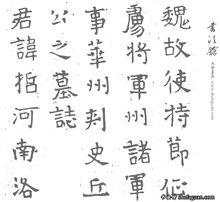 魏故使持節征
虜將軍州諸軍
事華州刺史丘
公之墓誌
君諱哲河南洛